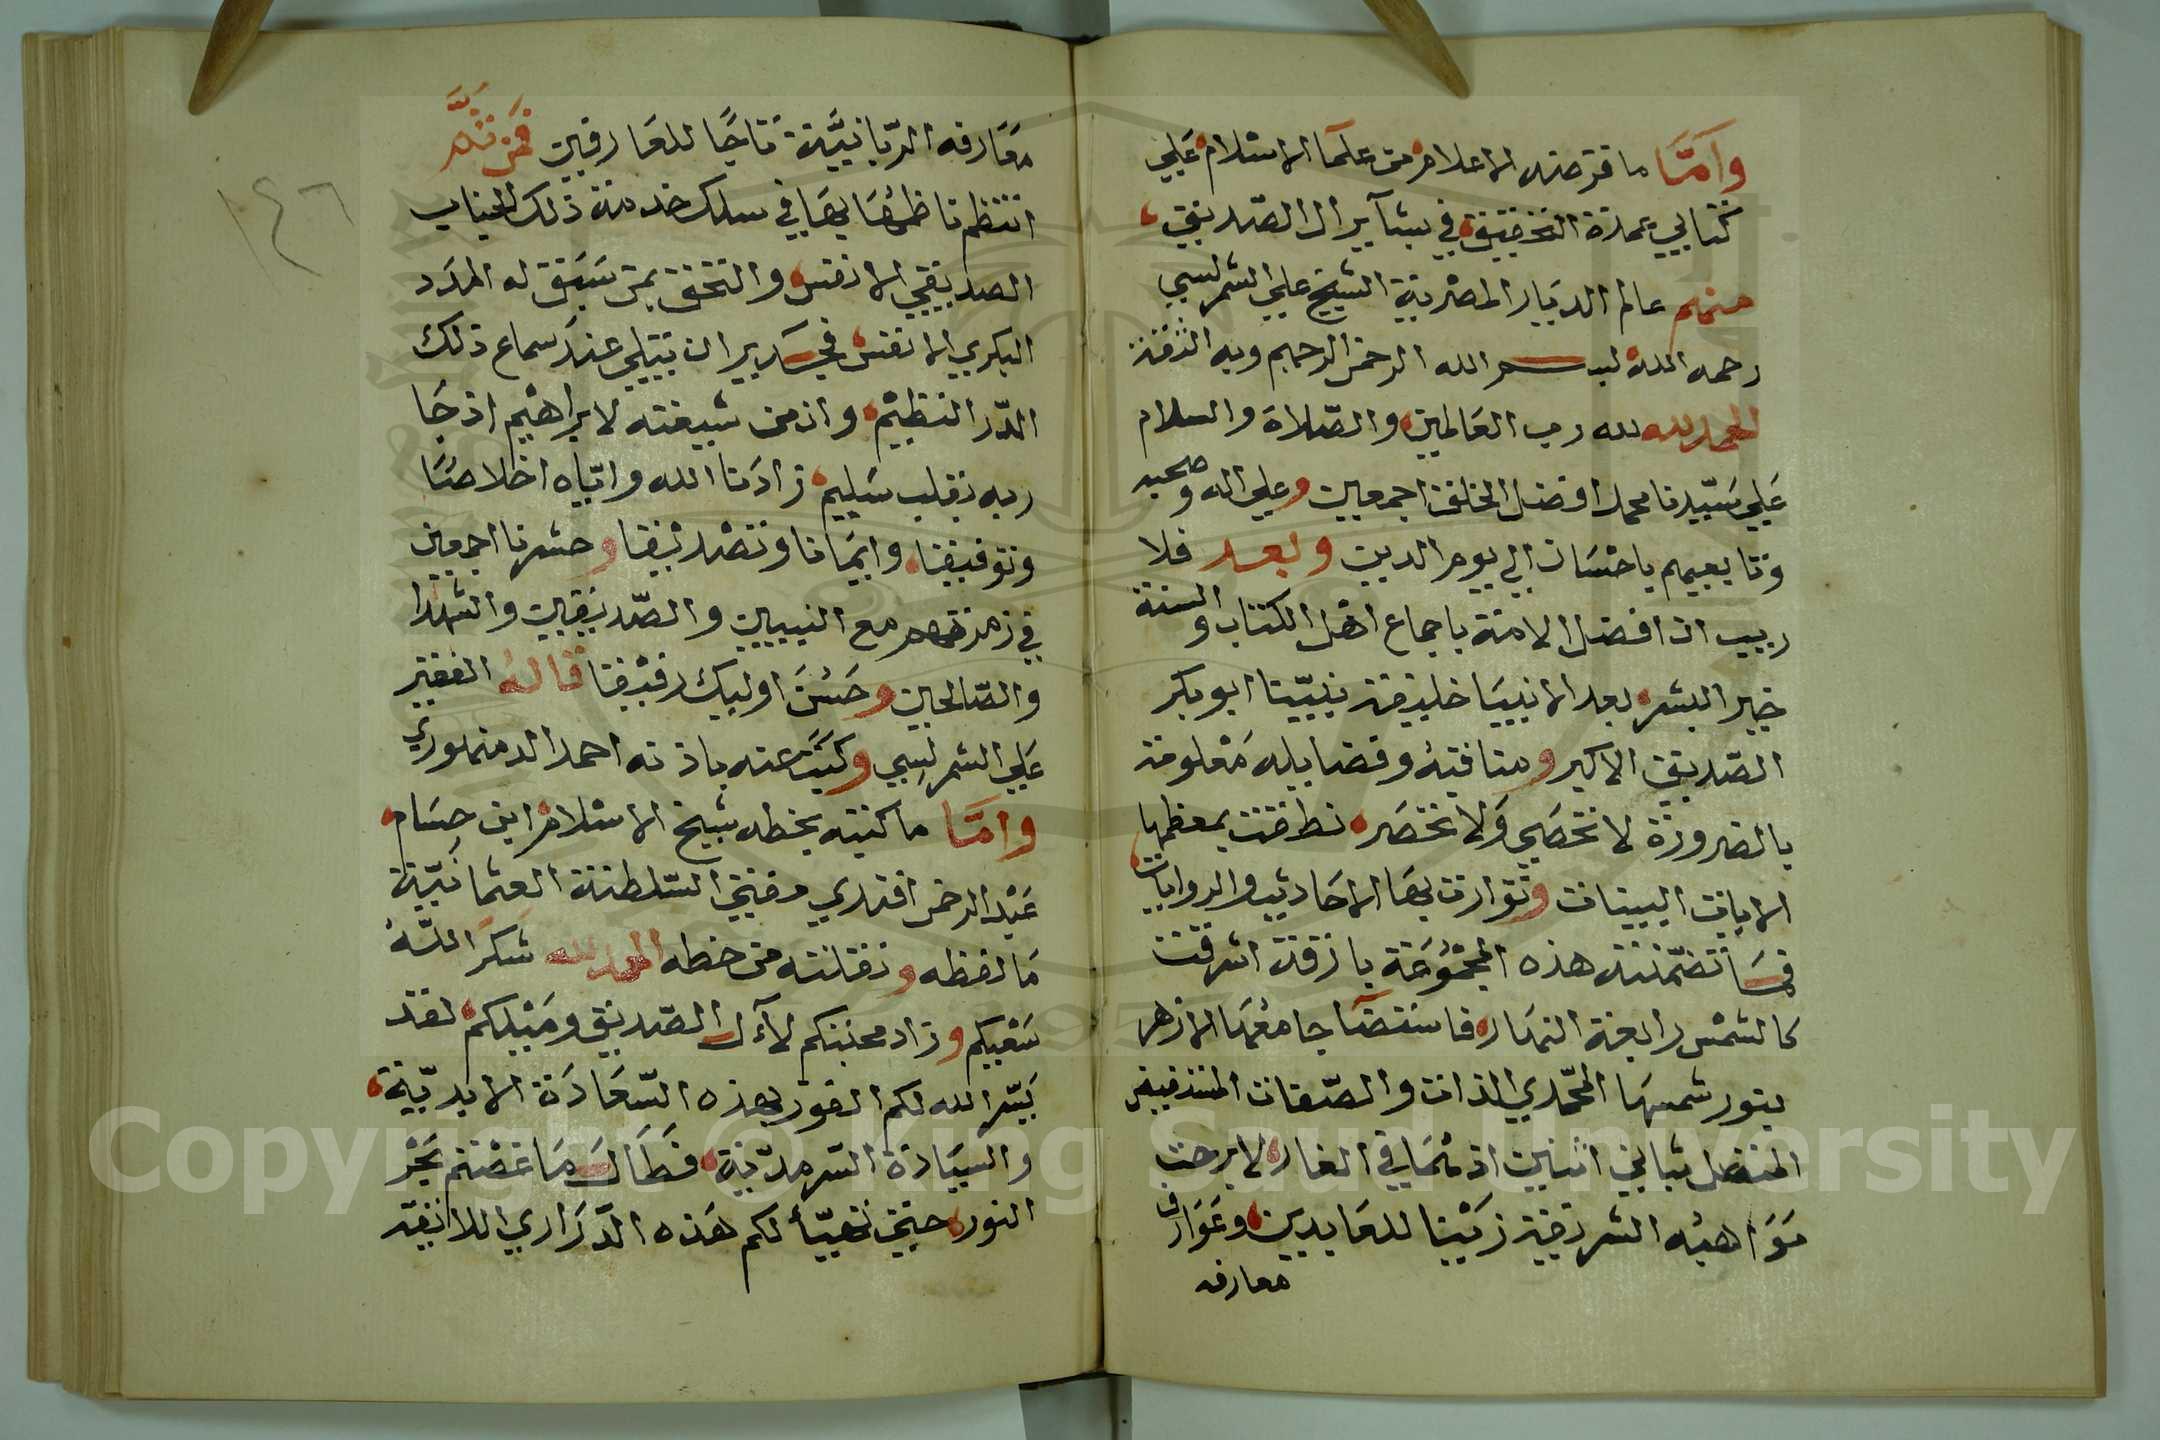 وَأمَّا ما قرضه الاعلام من علمآ الاسلام علي
كتابي عمدة التحقيق في بشآير ال الصديق
منهم عالم الديار المصرية الشيخ علي الشمرلسي
رحمه الله بسم الله الرحمن الرحيم وبه الثقة
الحمد لله لله رب العالمين والصّلاة والسلام
عَلي سَيّدنا محمد افضل الخلق اجمعين وعلي اله وصحبه
وتابعيهم باحسَان الي يوم الدين وبعد فلا
ريب ان افضل الامة باجماع اهْل الكتاب والسنة
خير البشر بعد الانبيَا خليفة نبيّنا ابو بكر
الصّديق الاكبر ومناقبهُ وفضايله مَعْلومة
بالضرورة لا تحصَي وَلا تحصَر نطقت بمعظمها
الايات البينات وتوارت بهَا الاحَاديث والروايات
فمَا تضمّنته هذه المجْمُوعَة بازقة اشرقت
كالشمْس رابعة النهَار فاستضآ جامعُهَا الازهر
بنور شمسهَا المحمّدي الذات والصّفات
المتصل بثاني اثنين اذ همَا في الغار لا برحت
مَوَاهبُه الشريفة زَيْنا للعَابدين وعَوَارف
معارفه
مَعَارفه الربّانيَّة تَاجًا للعَارفين فمن ثمَّ
انتظم ناظمُهَا بهَا في سلك خدمة ذلك الجناب
الصديقي الاقدس والتحق بمن سَبَق له المدَد
البكري الانفس فجَدير ان يتلي عندَ سماع ذلك
الدّر النظيْم وان من شيعته لابراهيْم اذ جَا
ربه بقلب سَليم زادَنا الله واياه اخلاصًا
وتوفيقا وايمَانا وتصْديْقا وحشرنا اجمعين
في زمرتهم مع النبيين والصّديقين والشهدا
والصّالحين وحَسُنَ اوليك رفيْقا قالهُ الفقير
عَلي الشمرلِسِي وكتبَ عنه باذنه احمد الدمنهوري
وامَّا ما كتبه بخطه شيخ الاسْلام ابن حسَام
عَبْد الرحمن افندي مفتي السّلطنة العثمانيّة
مَا لفظه ونقلته من خطه الحمد لله شكرَ اللّهُ
سَعْيكم وزاد محبتكم لآل الصّديق ومَيْلكم لقد
يَسّر الله لكم الفوز بهذه السّعَادَة الابديّة
والسّيَادَة السّرمديّة فطَالَ مَا غصْتم بَحْر
النور حتي تهيّأ لكم هَذه الدّرَاري اللائقة
١٤٦
Copyright © King Saud University